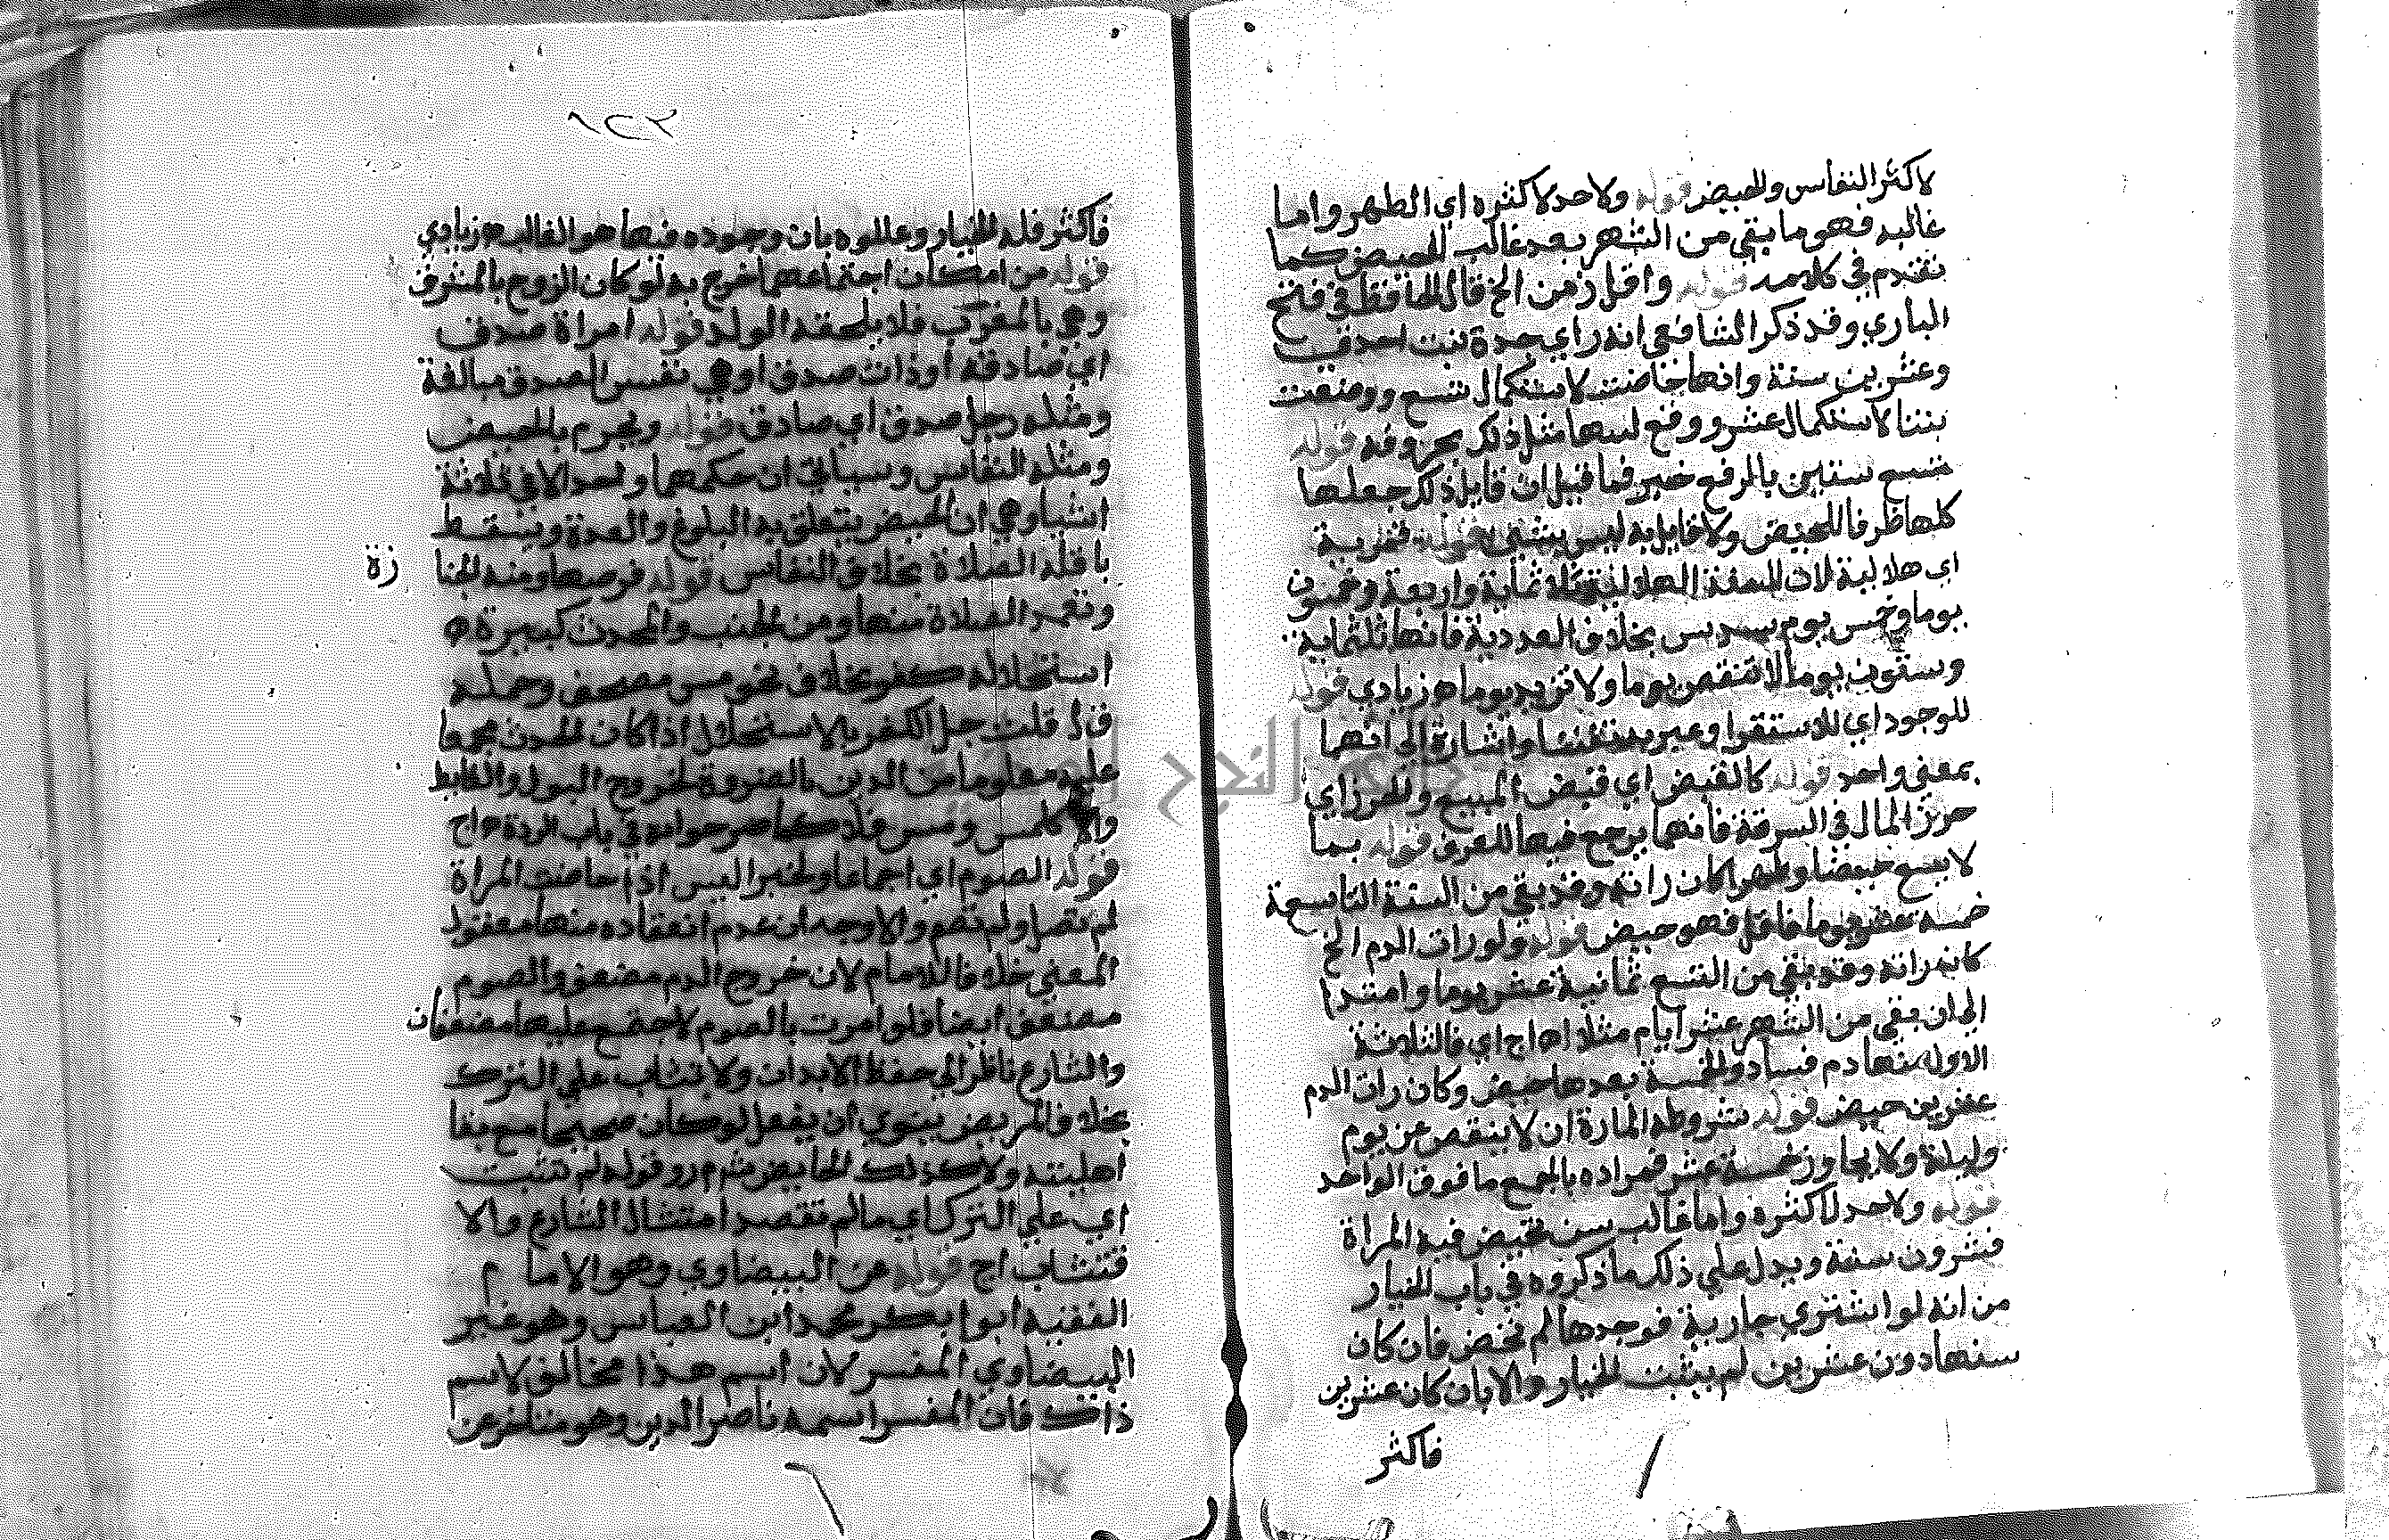 لاكثر النفاس والحيض قوله ولاحد لاكثره اي الطهر واما
غالبه فهو ما بقي من الشهر بعد غالب الحيض كما
تقدم في كلامه قوله واقل زمن الخ قال الحافظ في فتح
الباري وقد ذكر الشافعي انه راي جدة بنت احدي
وعشرين سنة وانها حاضت لاستكمال تسع ووضعت
بنتا لاستكمال عشر ووقع لبنتها مثل ذلك بحروفه قوله
تسع سنين بالرفع خبر فما قيل ان قايل ذلك جعلها
كلها ظرفا للحيض ولا قايل به ليس بشي قوله قمرية
اي هلالية لان السنة الهلالية ثلاثماية واربعة وخمسون
يوما وخمس يوم وسدس بخلاف العددية فانها ثلثماية
وستون يوما لا تنقص يوما ولا تزيد يوما اه زيادي قوله
للوجود اي للاستقرا وعبر به تفننا واشارة الي انهما
بمعني واحد قوله كالقبض اي قبض المبيع والحرز اي
حرز المال في السرقة فانهما يرجع فيها للعرف قوله بما
لا يسع حيضا وطهرا كان راته وقد بقي من السنة التاسعة
خمسة عشر يوما فاقل فهو حيض قوله ولو رات الدم الخ
كانه راته وقد بقي من التسع ثمانية عشر يوما وامتدا
الي ان بقي من الشهر عشر ايام مثلا اه اج اي فالثلاثة
الاوله منها دم فساد والخمسة بعدها حيض وكان رات الدم
عشرين حيض قوله بشروطه المارة ان لا ينقص عن يوم
وليلة ولا يجاوز خمسة عشر فمراده بالجمع ما فوق الواحد
قوله ولاحد لاكثره واما غالب سن تحيض فيه المراة
فعشرون سنة ويدل علي ذلك ما ذكروه في باب الخيار
من انه لو اشتري جارية فوجدها لم تحض فان كان
سنها دون عشرين لم يثبت الخيار والا بان كان عشرين
فاكثر
١٢٣
فاكثر فله الخيار وعللوه بان وجوده فيها هو الغالب اه زيادي
قوله من امكان اجتماعهما خرج به لو كان الزوج بالمشرق
وهي بالمغرب فلا يلحقه الولد قوله امراة صدق
اي صادقة او ذات صدق او هي نفس الصدق مبالغة
ومثله رجل صدق اي صادق قوله ويحرم بالحيض
ومثله النفاس وسياتي ان حكمهما واحد الا في ثلاثة
اشيا وهي ان الحيض يتعلق به البلوغ والعدة ويسقط
باقله الصلاة بخلاف النفاس قوله فرضها ومنه الجنا
زة
وتحرم الصلاة منها ومن الجنب والمحدث كبيرة ه
استحلاله كفر بخلاف نحو مس مصحف وحمله
فان قلت جل الكفر بالاستحلال اذا كان الحدث مجمعا
عليه معلوما من الدين بالضرورة لخروج البول والغايط
والا كلمس ومس فلا كما صرحوا به في باب الردة اه اج
قوله الصوم اي اجماعا ولخبر اليس اذا حاضت المراة
لم تصل ولم تصم والاوجه ان عدم انعقاده منها معقول
المعني خلافا للامام لان خروج الدم مضعف والصوم
مضعف ايضا فلو امرت بالصوم لاجتمع عليها مضعفان
والشارع ناظر الي حفظ الابدان ولا تثاب علي الترك
بخلاف المريض ينوي ان يفعل لو كان صحيحا مع بقا
اهليته ولا كذلك الحايض شم رو قوله لم تثبت
اي علي الترك اي ما لم تقصد امتثال الشارع والا
فتثاب اج قوله عن البيضاوي وهو الامام
الفقيه ابوا بكر محمد ابن العباس وهو غير
البيضاوي المفسر لان اسم هذا مخالف لاسم
ذاك فان المفسر اسمه ناصر الدين وهو متاخر عن